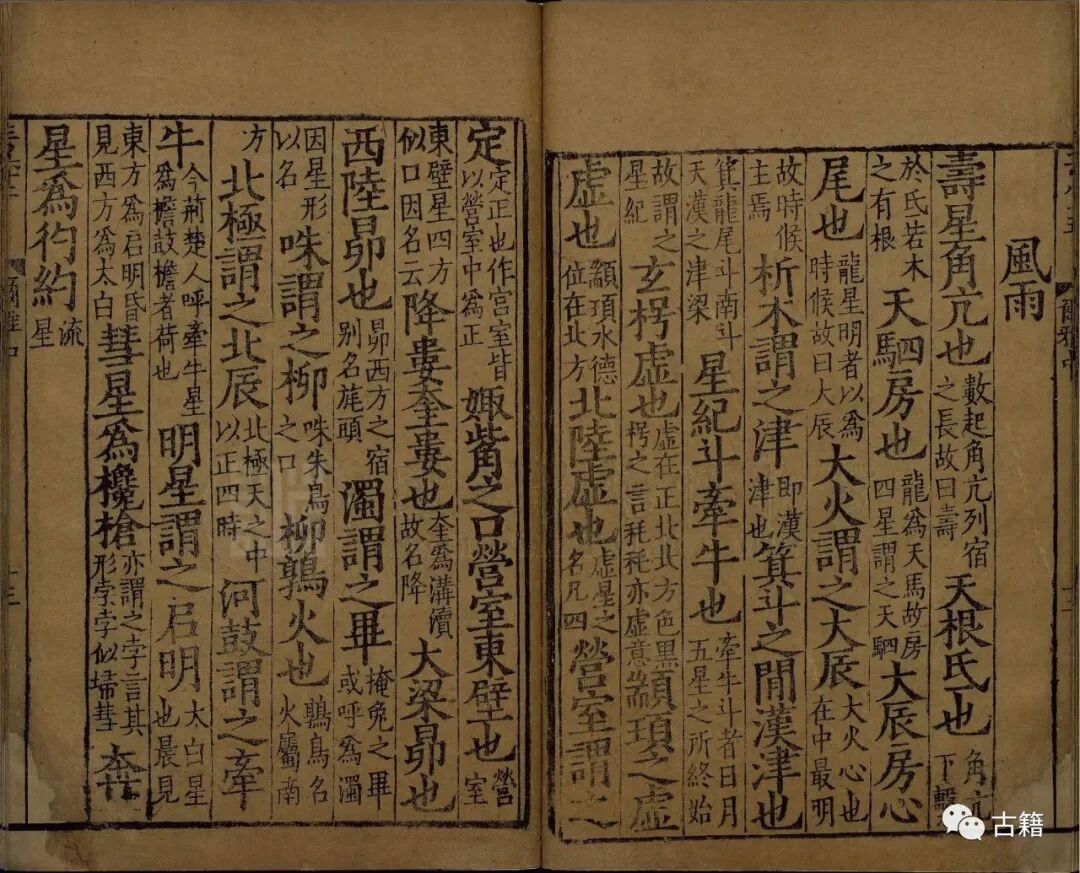 風雨
壽星角亢也數起角亢列宿之長故曰壽天根氐也角亢下繫
於氐若木之有根天駟房也龍爲天馬故房四星謂之天駟大辰房心
尾也龍星明者以爲時候故曰大辰大火謂之大辰大火心也在中最明
故時候主焉析木謂之津即漢津也箕斗之間漢津也
箕龍尾斗南斗天漢之津梁星紀斗牽牛也牽牛斗者日月五星之所終始
故謂之星紀玄枵虛也虛在正北北方色黑枵之言耗耗亦虛意顓頊之虛
虛也顓頊水德位在北方北陸虛也虛星之名凡四營室謂之
定定正也作宮室皆以營室中爲正娵觜之口營室東壁也營室
東壁星四方似口因名云降婁奎婁也奎爲溝瀆故名降大梁昴也
西陸昴也昴西方之宿别名旄頭濁謂之畢掩兔之畢或呼爲濁
因星形以名咮謂之柳咮朱鳥之口柳鶉火也鶉鳥名火屬南
方北極謂之北辰北極天之中以正四時河鼓謂之牽
牛今荊楚人呼牽牛星爲檐鼓檐者荷也明星謂之启明太白星也晨見
東方爲启明昏見西方爲太白彗星爲欃槍亦謂之孛言其形孛孛似埽彗奔
星爲彴約流星
古籍